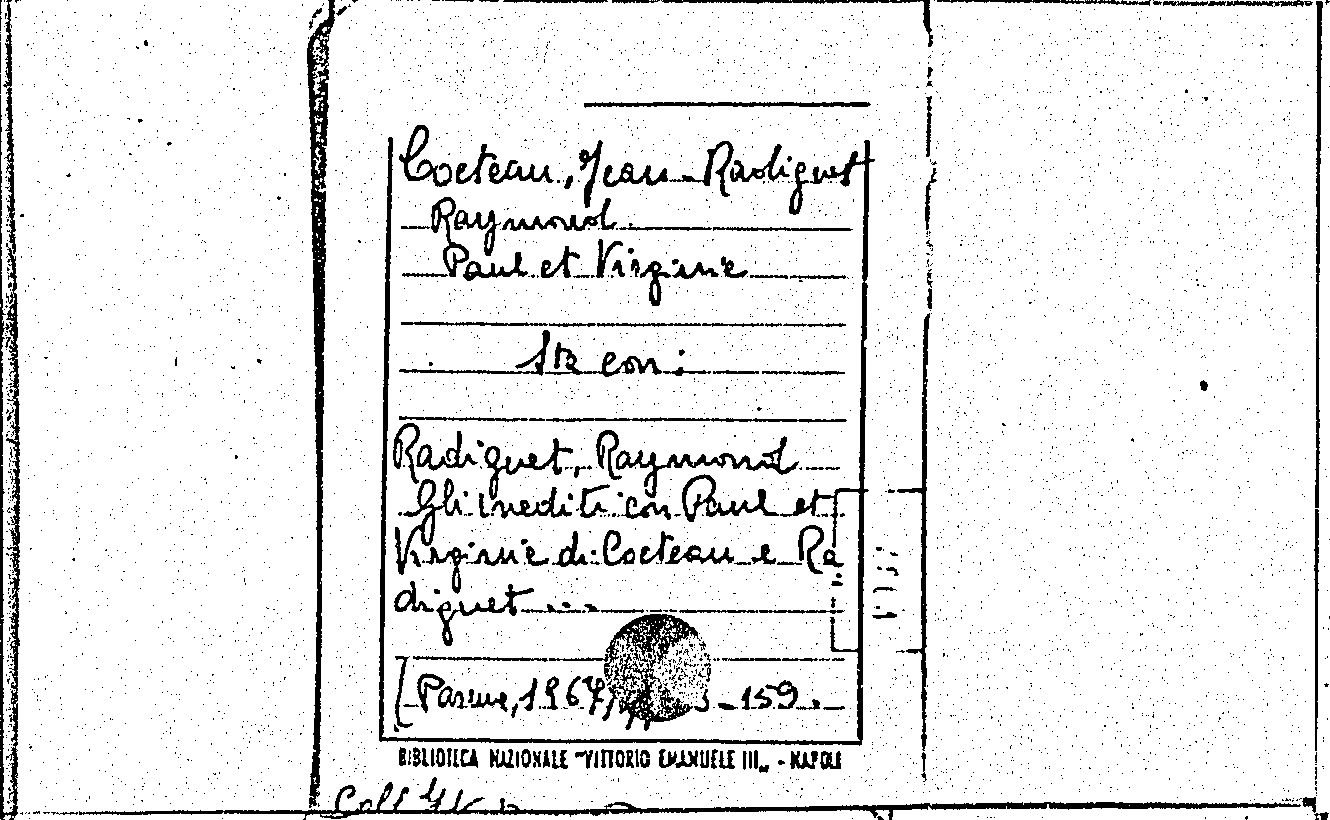 Cocteau, Jean - Radiguet
Raymond.
Paul et Virginie
Sta con:
Radiguet, Raymond
Gli inediti con Paul et
Virginie di Cocteau e Ra
diguet ...
[Parme, 1967, - 159.
BIBLIOTECA NAZIONALE "VITTORIO EMANUELE III" - NAPOLI
Coll